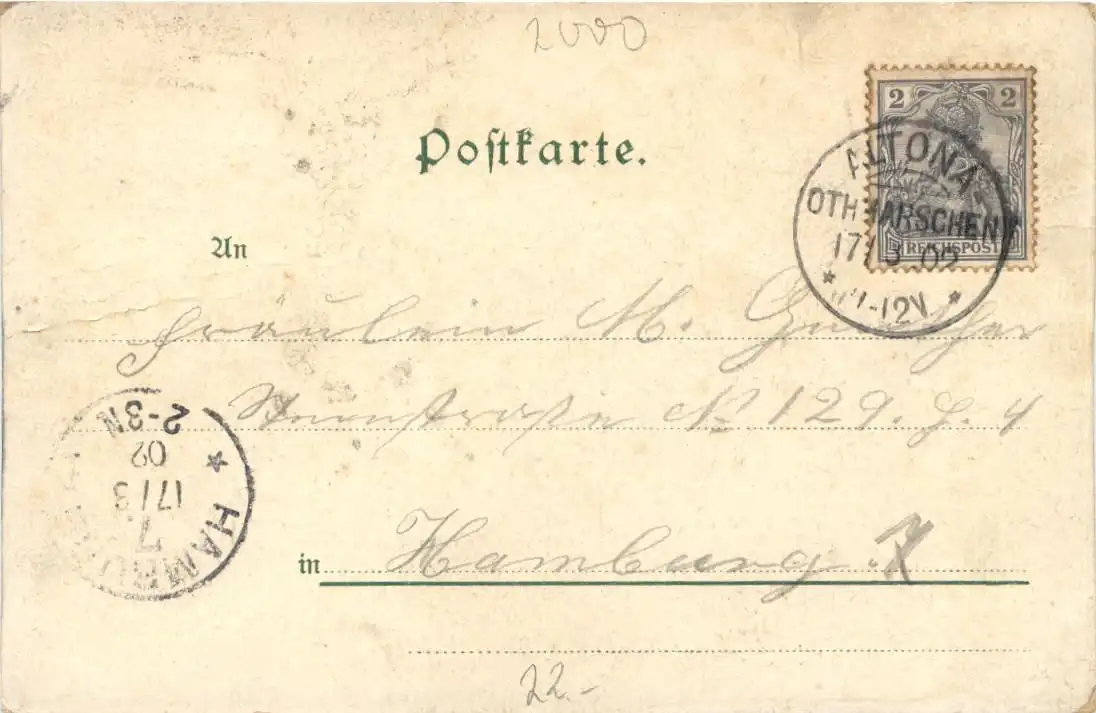 2000
Postkarte.
2 2
REICHSPOST
ALTONA-
OTHMARSCHEN
17/3 02
* 11-12V *
An
Fräulein M. Günther
No 129. H. 4
2-3N
02
17/3
7
* HAMBURG
in Hamburg 7
22.-